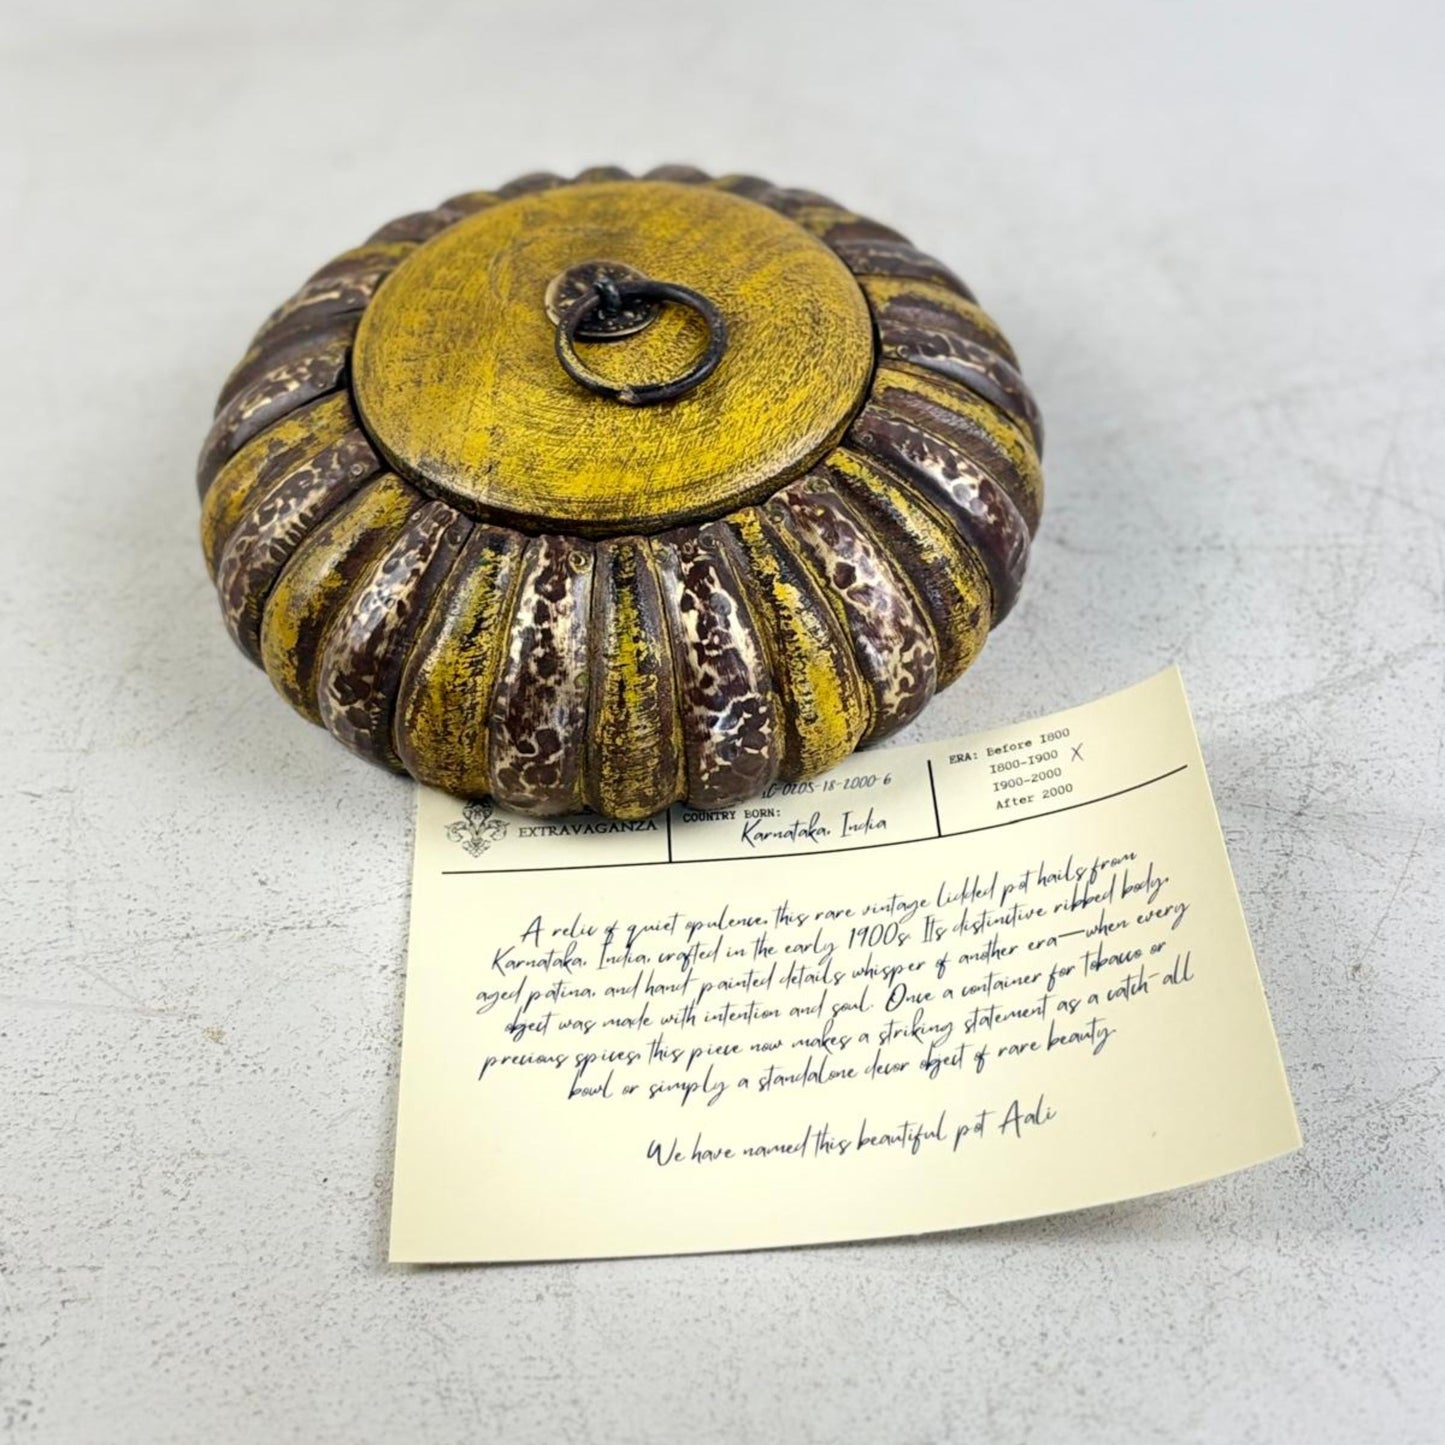 EXTRAVAGANZA
-0205-18-2000-6
COUNTRY BORN:
Karnataka, India
ERA: Before 1800
1800-1900 X
1900-2000
After 2000
A relic of quiet opulence, this rare vintage lidded pot hails from
Karnataka, India, crafted in the early 1900s. Its distinctive ribbed body,
aged patina, and hand painted details whisper of another era—when every
object was made with intention and soul. Once a container for tobacco or
precious spices, this piece now makes a striking statement as a catch-all
bowl or simply a standalone decor object of rare beauty.
We have named this beautiful pot Aali